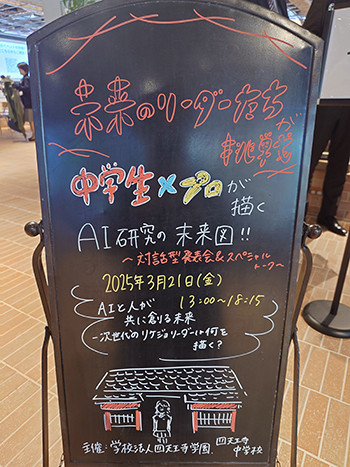 未来のリーダーたちが
挑戦する
中学生×プロが
描く
AI研究の未来図!!
〜対話型発表会&スペシャル
トーク〜
2025年3月21日(金)
13:00〜18:15
AIと人が
共に創る未来
―次世代のリケジョリーダーは何を
描く?
主催:学校法人四天王寺学園
四天王寺
中学校